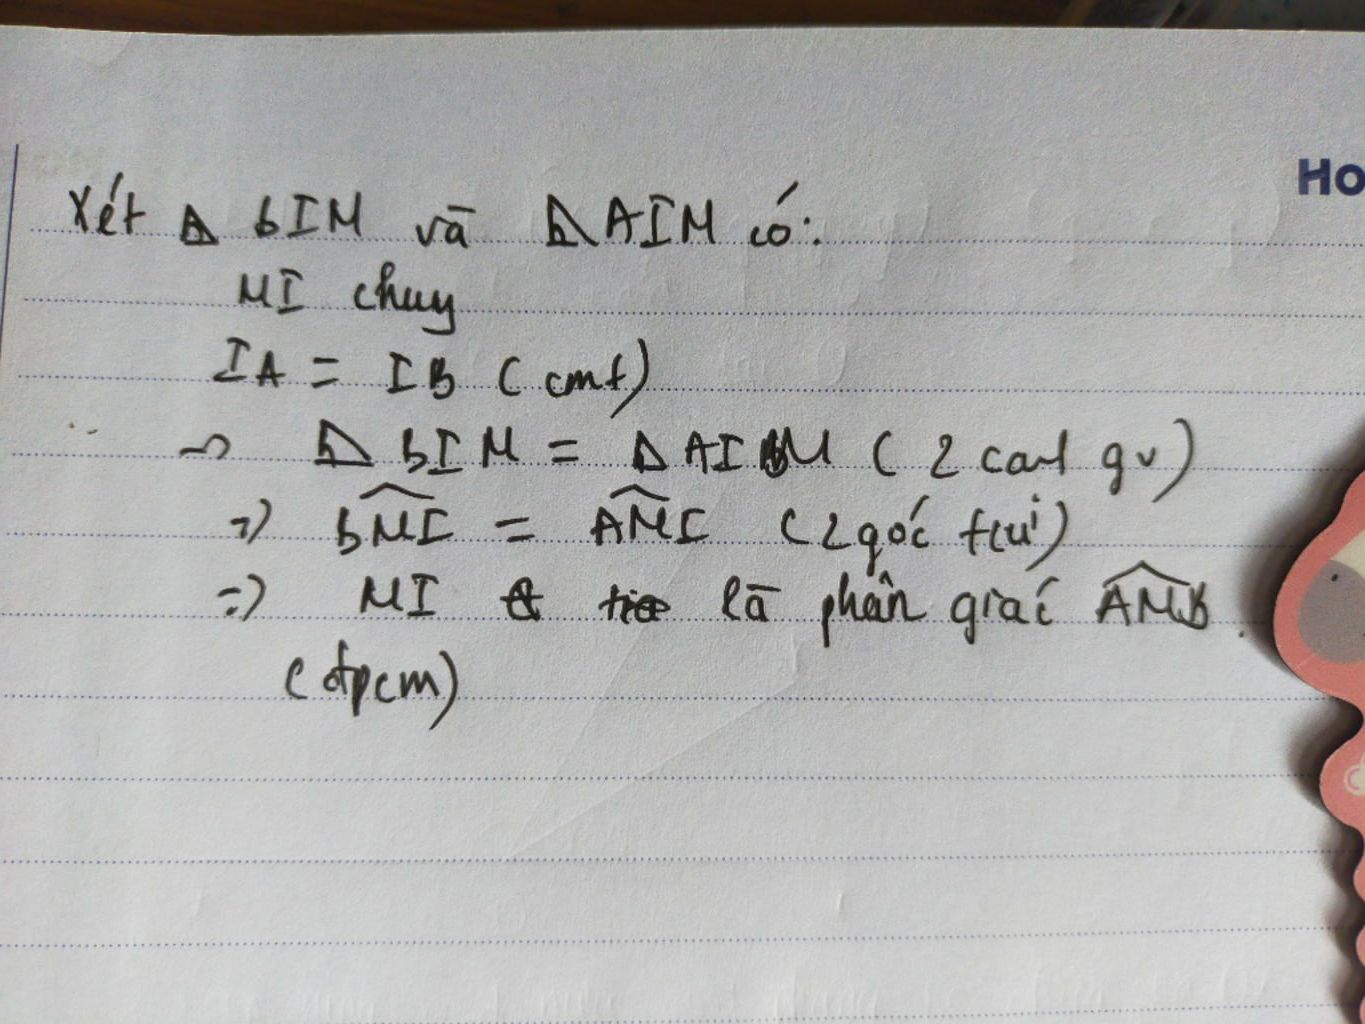 Ho
Xét △ bIM và △ AIM có:
MI chug
IA = IB (cmt)
=> △ BIM = △ AIM (2 cạnh gv)
=> BMI = AMI (2 góc tứ)
=> MI là phân giác AMB.
(đpcm)